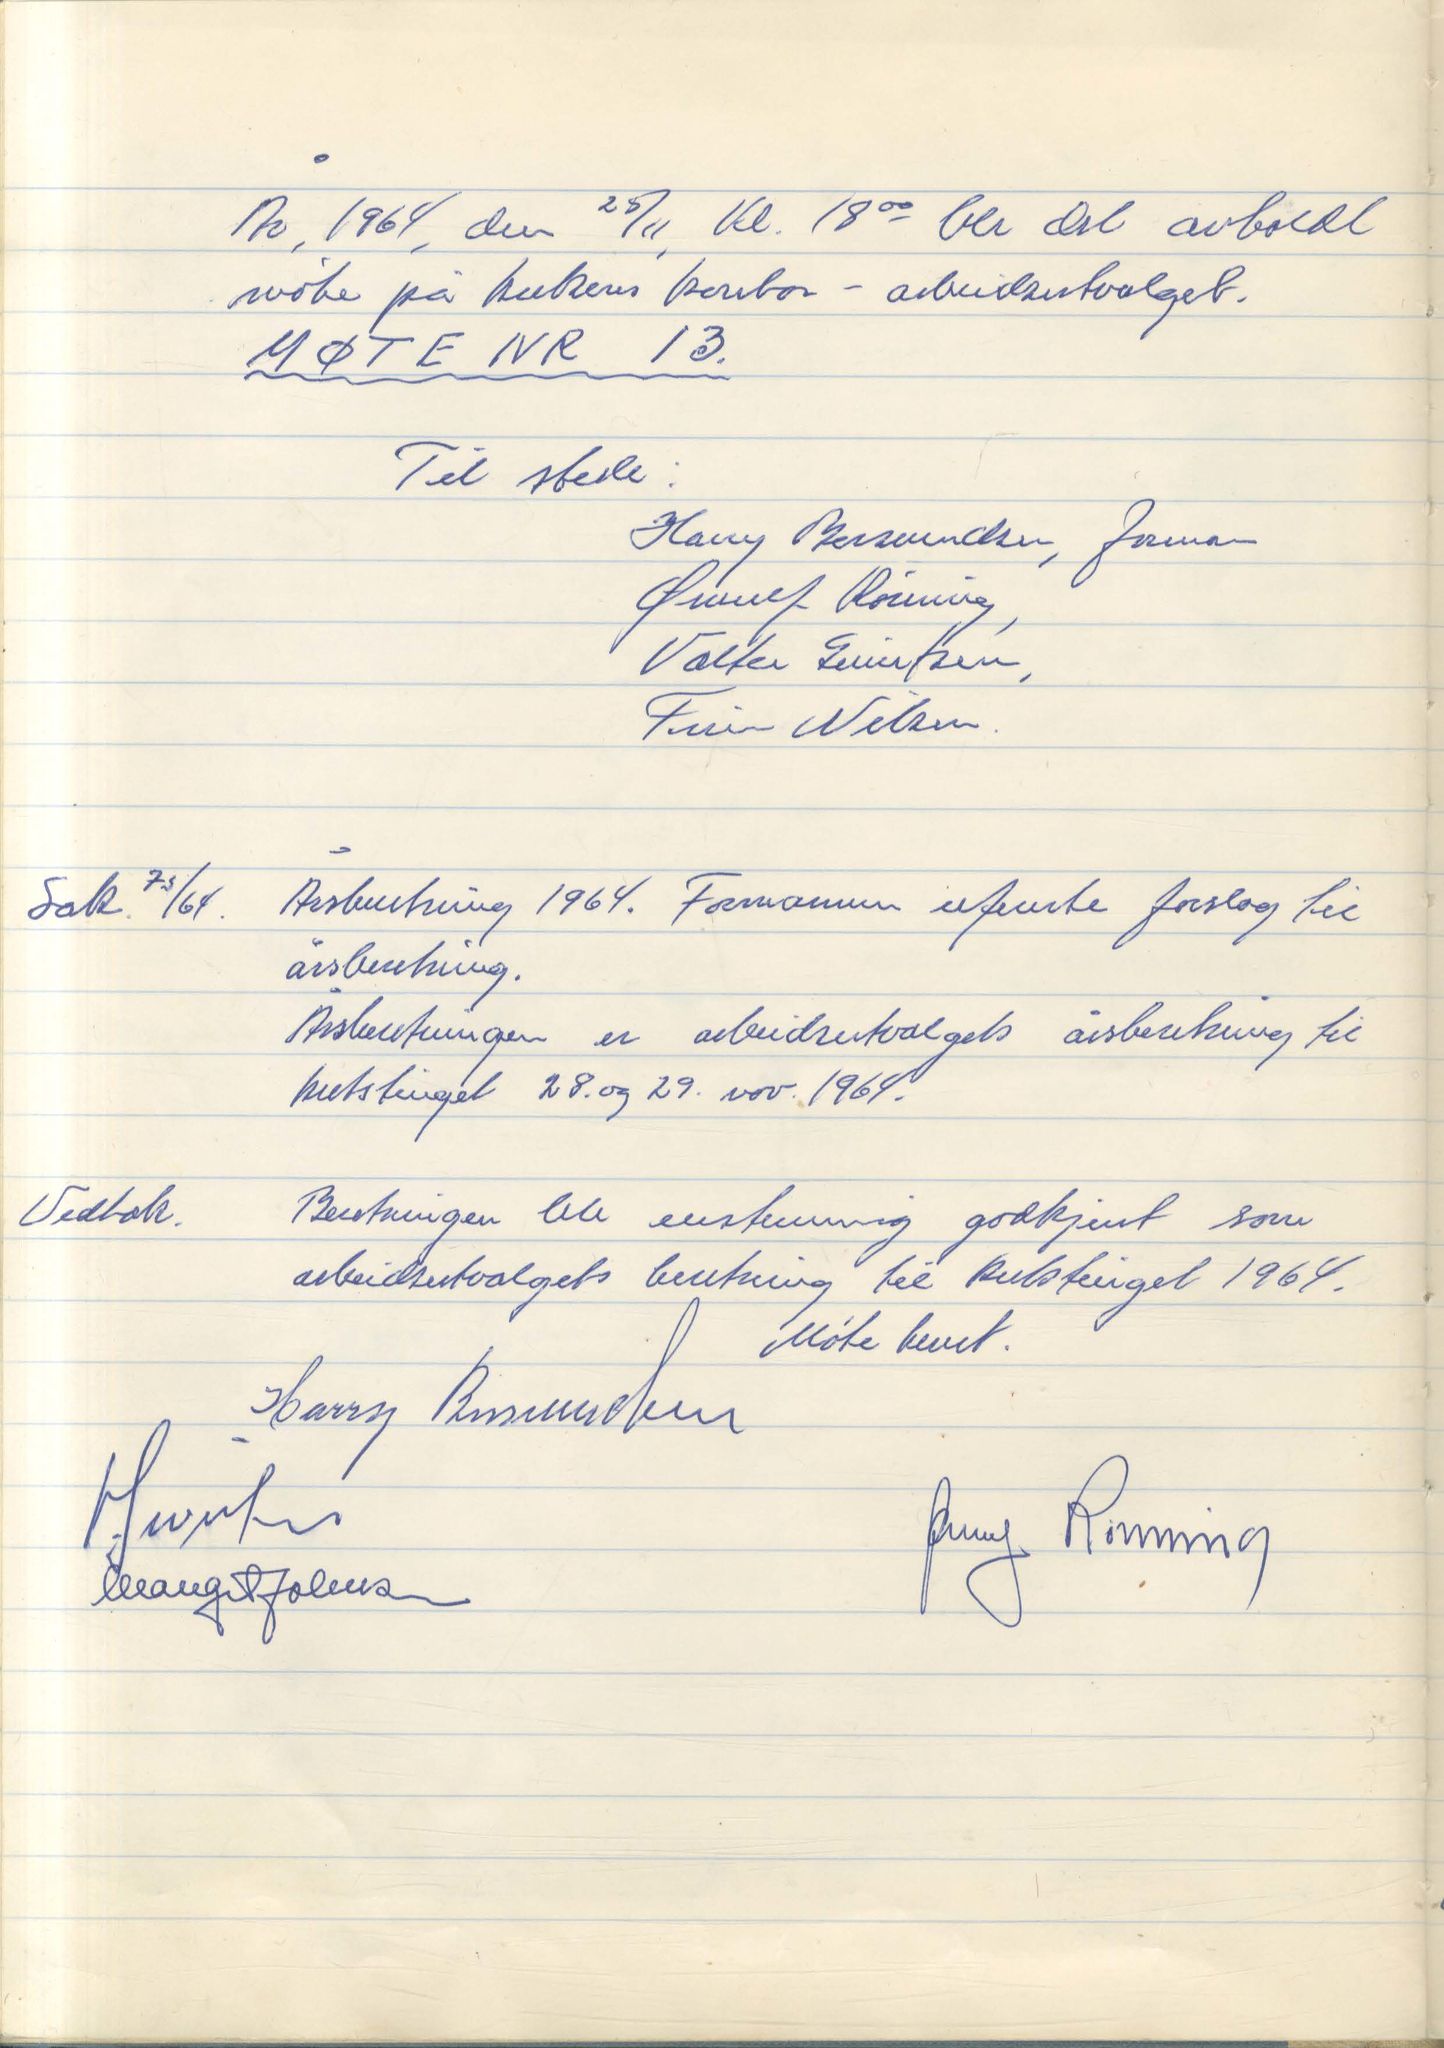 År, 1964, den 25/11, kl. 18⁰⁰ ble det avholdt
møte på kretsens kontor - arbeidsutvalget.
MØTE NR 13.
Til stede:
Harry Rasmundsen, forman
Ørnulf Rönning,
Valter
Finn Nilsen.
Sak. 73/64. Årsberetning 1964. Formannen refererte forslag til
årsberetning.
Årsberetningen er arbeidsutvalgets årsberetning til
kretstinget 28. og 29. nov. 1964.
Vedtak. Beretningen ble enstemmig godkjent som
arbeidsutvalgets beretning til kretstinget 1964.
Möte hevet.
Harry Rasmundsen
Ørnulf Rönning
Margit Johnsen